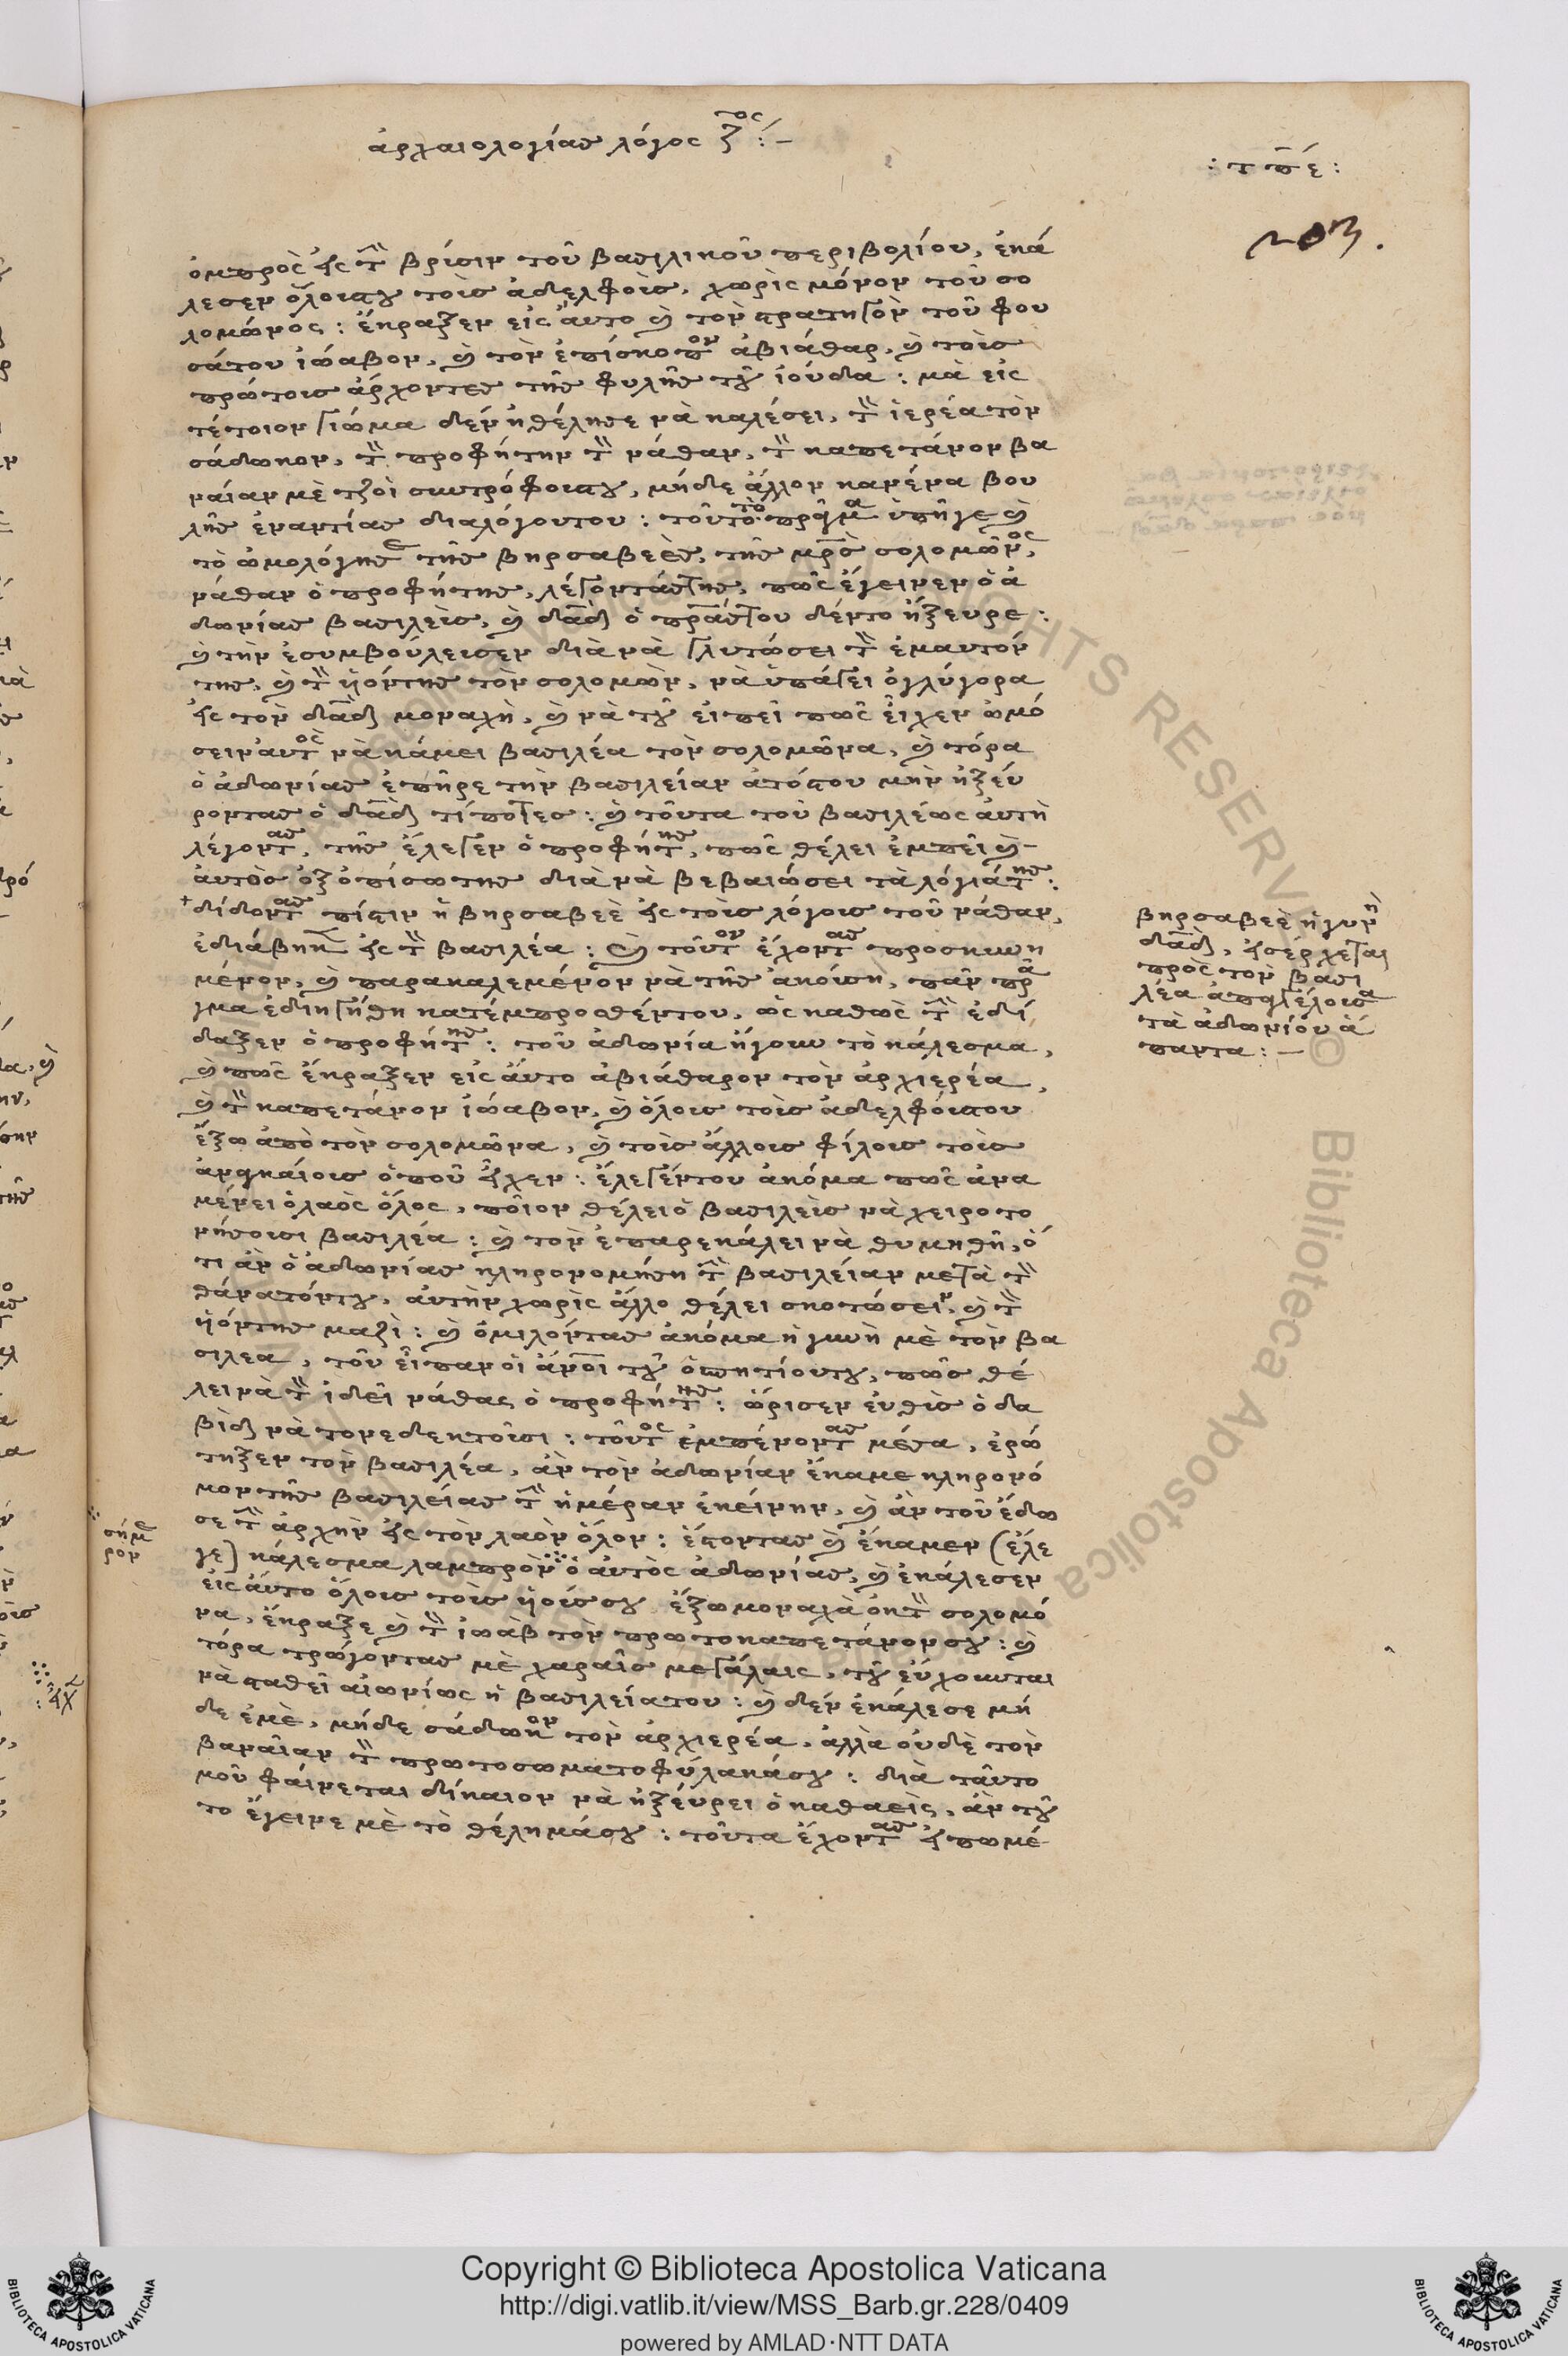 ἀρχαιολογίας λόγος ζ τος :-
: τπέ :
203.
όμπρὸς εἰς τὴ βρίσιν τοῦ βασιλικοῦ περιβολίου, ἐκά
λεσεν ὅλουςτου τοὶς ἀδελφοὶς, χωρὶς μόνον τοῦ σο
λομῶνος : ἔκραξεν εἰς ἄυτο καὶ τὸν στρατηγὸν τοῦ φου
σάτου ἰώαβον, καὶ τὸν ἐπίσκοπον ἀβιάθαρ, καὶ τοὶς
πρώτοις ἄρχοντες τῆς φυλῆς τοῦ ἰούδα : μὰ εἰς
τέτοιον γίωμα δὲν ἠθέλησε νὰ καλέσει, τὸν ἱερέα τὸν
σάδωκον, τὸν προφήτην τὸν νάθαν, τὸν καπετάνον βα
ναίαν μὲ τζοὶ συντρόφουςτου, μήδε ἄλλον κανένα βου
λῆς ἐναντίας διαλόγουτου : τοῦτο τὸ πρᾶγμα ὑπῆγε καὶ
τὸ ὡμολόγησε τῆς βηρσαβεὲς, τῆς μρὸς σολομῶνος,
νάθαν ὁ προφήτης, λέγοντάςτης, πῶς ἔγεινεν ὁ ἀ
δωνίας βασιλεὶς, καὶ δαδ ὁ πραςτου δέντο ἤξευρε :
καὶ την ἐσυμβούλεισεν διὰ νὰ γλυτώσει τὸν ἐμαυτόν
της, καὶ τὸν ἡόντης τὸν σολομὼν, νὰ ὑπάγει ὀγλύγορα
εἰς τὸν δαδ μοναχὴ, καὶ νὰ τοῦ εἰπεῖ πῶς εἶχεν ὠμό
σειν αυτὸς νὰ κάμει βασιλέα τὸν σολομῶνα, καὶ τόρα
ὁ ἀδωνίας ἐπῆρε τὴν βασιλείαν ἀτόςτου μὴν ἠξέυ
ροντας ὁ δαδ τίποτες : καὶ τοῦτα τοῦ βασιλέως ἀυτὴ
λέγοντας, τῆς ἔλεγεν ὁ προφήτης, πῶς θέλει ἐμπεῖ καὶ-
ἀυτὸς ὀξοπίσω της διὰ νὰ βεβαιώσει τὰ λόγιάτης :
+ δίδοντας πίστιν ἡ βηρσαβεὲ εἰς τοὶς λόγους τοῦ νάθαν,
ἐδιάβηκε εἰς τὸν βασιλέα : καὶ τοῦτον ἔχοντας προσκυνη
μένον, καὶ παρακαλεμένον νὰ τῆς ἀκούση, πᾶν πρᾶ
γμα ἐδιηγήθη κατέμπροσθέντου, ὡς καθὼς τὴν ἐδί
δαξεν ὁ προφήτης : τοῦ ἀδωνία ἤγουν τὸ κάλεσμα,
καὶ πῶς ἔκραξεν εἰς ἄυτο ἀβιάθαρον τὸν ἀρχιερέα,
καὶ τὸν καπετάνον ἰώαβον, καὶ ὅλους τοὶς ἀδελφόυςτου
ἔξω ἀπὸ τὸν σολομῶνα, καὶ τοὶς ἄλλους φίλους τοὶς
ἀναγκαίους ὁποῦ εἶχεν : ἔλεγέντου ἀκόμα πῶς ἀνα
μένει ὁλαὸς ὅλος, ποῖον θέλει ὁ βασιλεὶς νὰ χειροτο
νήσουσι βασιλέα : καὶ τὸν ἐπαρεκάλει νὰ θυμηθῆ, ὅ
τι ἀν ὁ ἀδωνίας κληρονομήση τὴν βασιλείαν μετὰ τὸν
θάνατόντου, ἀυτὴν χωρὶς ἄλλο θέλει σκοτώσειν, καὶ τὸν
ἡόντης μαζὶ : καὶ ὁμιλόντας ἀκόμα ἡ γυνὴ μὲ τὸν βα
σιλεα, τοῦ εἶπαν ὁι ἄνοι τοῦ ὁσπητίουτου, πῶς θέ
λει νὰ τὸν ἰδεῖ νάθας ὁ προφήτης : ὥρισεν ἐυθὶς ὁ δα
βὶδ νὰ τονεδεκτοῦσι : τοῦτος ἐμπένοντας μέσα, ἐρώ
τηξεν τὸν βασιλέα, ἀν τὸν ἀδωνίαν ἔκαμε κληρονό
μον τῆς βασιλείας τὴν ἡμέραν ἐκείνην, καὶ ἀν τοῦ ἔδω
σε τὴν ἀρχὴν εἰς τὸν λαὸν ὅλον : ἔστοντας καὶ ἔκαμεν (ἔλε
γε) κάλεσμα λαμπρὸν ὁ ἀυτὸς ἀδωνίας, καὶ ἐκάλεσεν
εἰς ἄυτο ὅλους τοὶς ἡούςσου ἔξω μοναχὰ ὀκτὸν σολομό
να, ἔκραξε καὶ τὸν ἰωὰβ τὸν πρωτοκαπετάνονσου : καὶ
τόρα τρώγοντας μὲ χαραῖς μεγάλαις, τοῦ ἐύχουνται
νὰ σταθεῖ αἰωνίως ἡ βασιλείατου : καὶ δὲν ἐκάλεσε μή
δε ἐμὲ, μήδε σάδωκον τὸν ἀρχιερέα, ἀλλὰ ὀυδὲ τὸν
βαναῖαν τὸν πρωτοσωματοφύλακάσου : διὰ ταῦτο
μοῦ φάινεται δίκαιον νὰ ἠξέυρει ὁ καθαεὶς, ἀν τοῦ
το ἔγεινε μὲ τὸ θέλημάσου : τοῦτα ἔχοντας εἰπωμέ
βηρσαβεὲ ἡ γυνὴ
δαδ, εἰσέρχεται
πρὸς τὸν βασι
λέα ἀπαγγέλουσα
τὰ ἀδωνίου ἅ
παντα : -
σήμε
ρον